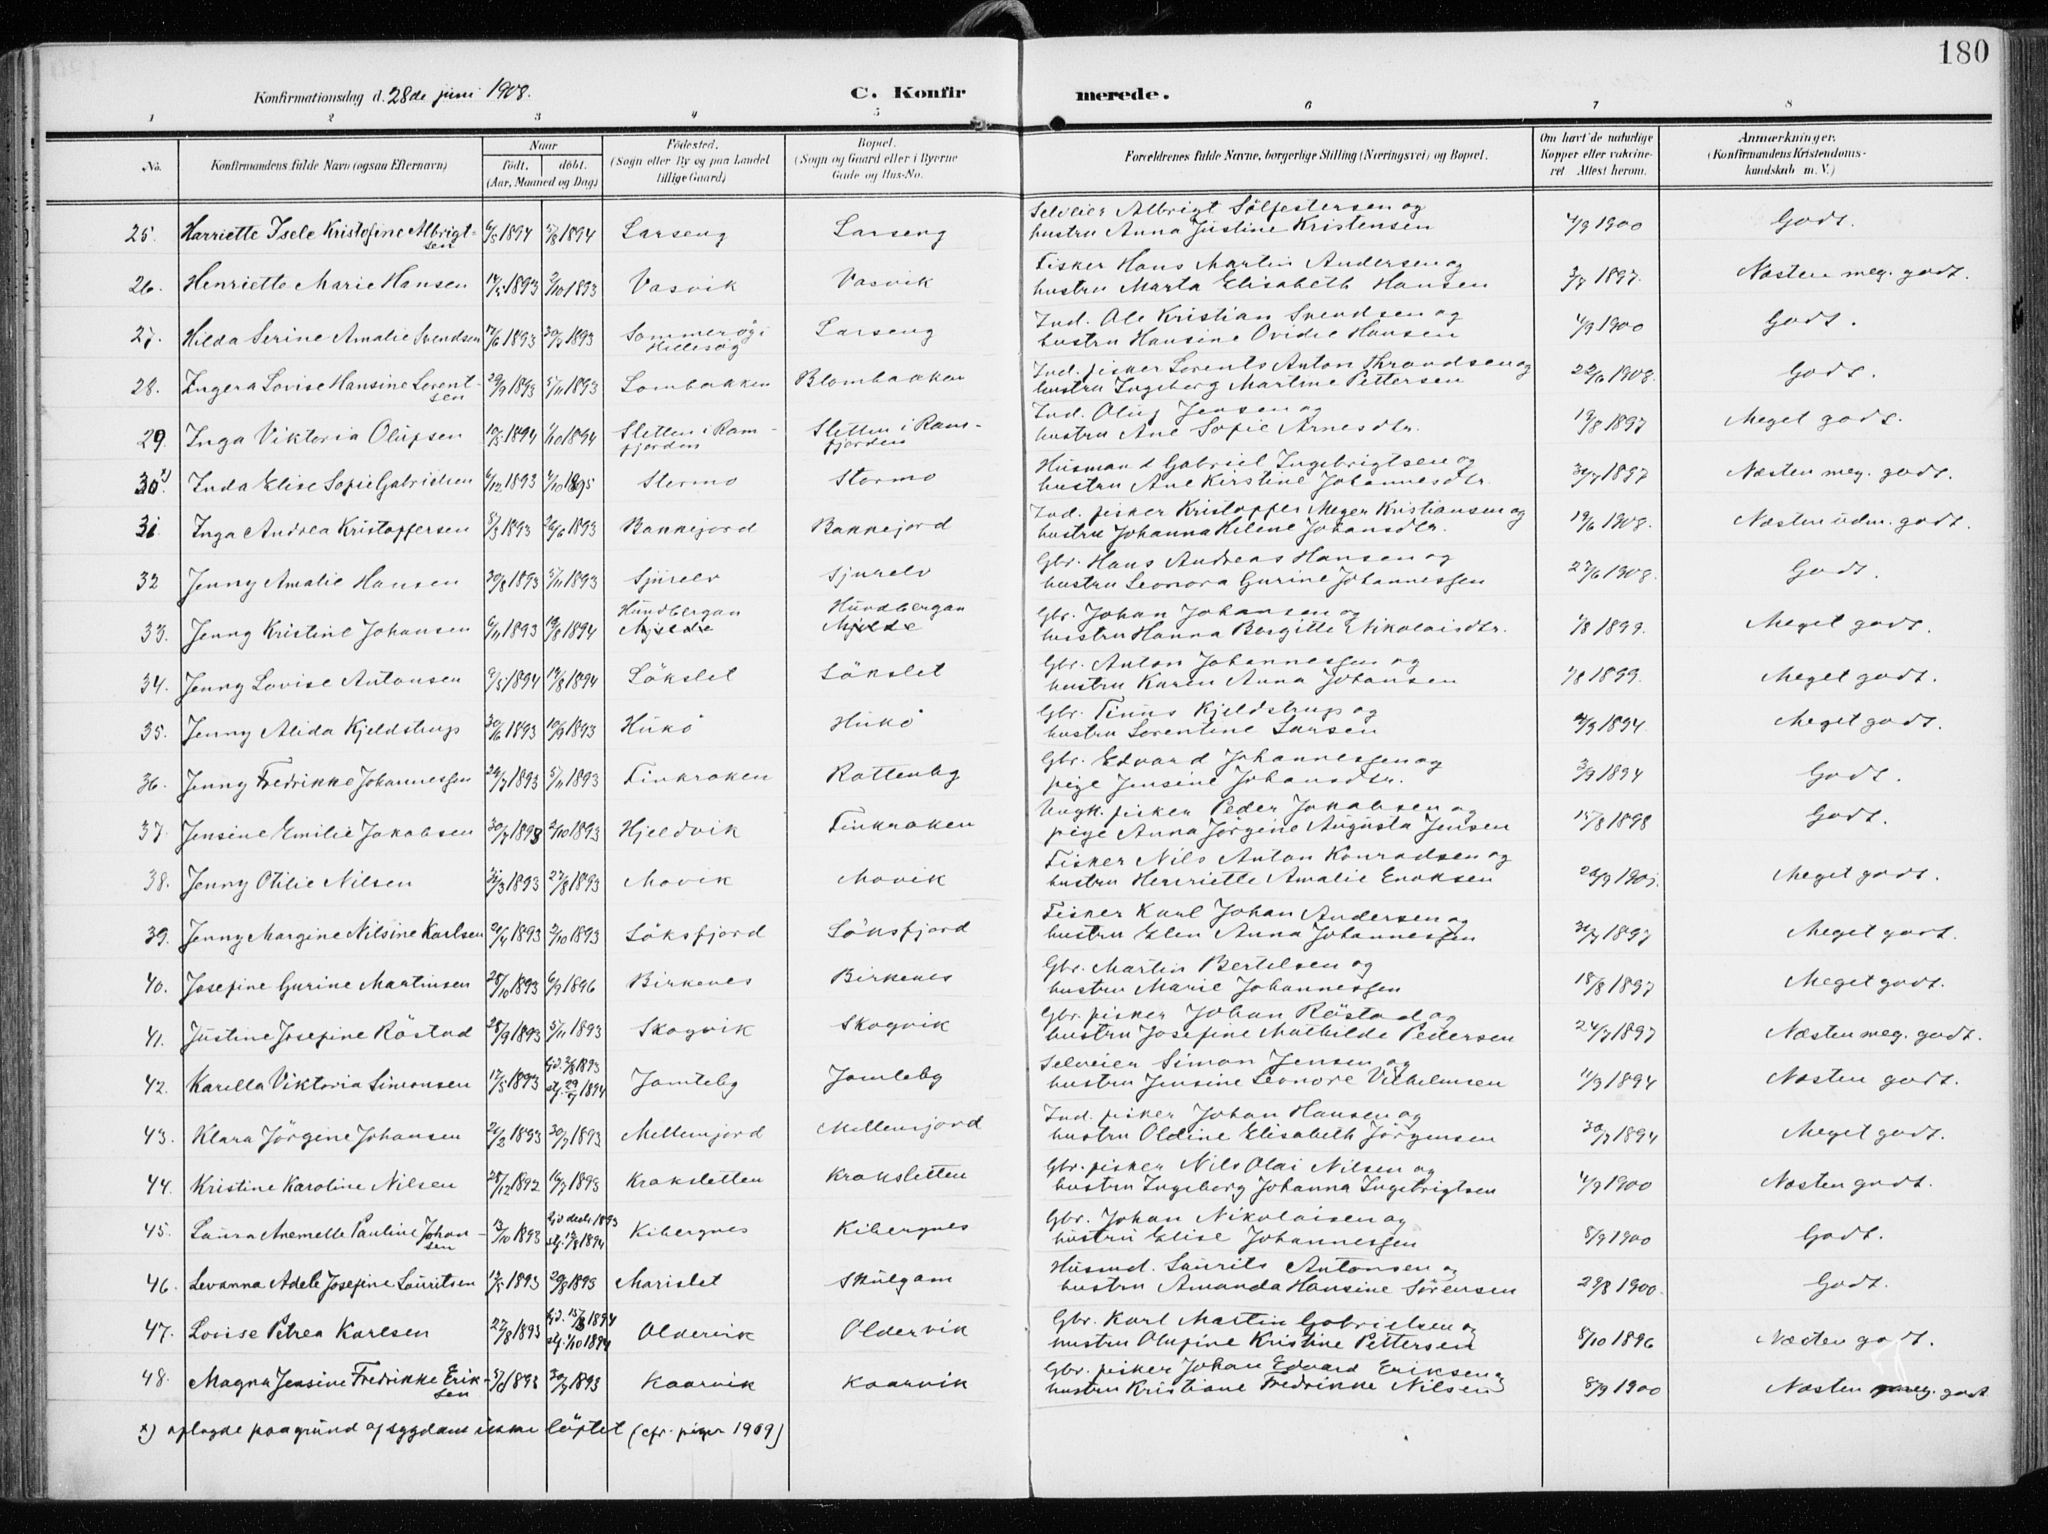 180
Konfirmationsdag d. 28de juni 1908.
C. Konfirmerede.
1 2 3 4 5 6 7 8
No.
Konfirmandens fulde Navn (ogsaa Efternavn)
Naar
født. døbt.
(Aar, Maaned og Dag)
Fødested.
(Sogn eller By og paa Landet tillige Gaard)
Bopæl.
(Sogn og Gaard eller i Byerne Gade og Hus-No.
Forældrenes fulde Navne, borgerlige Stilling (Næringsvei) og Bopæl.
Om havt de naturlige Kopper eller vaccineret Attest herom.
Anmærkninger.
(Konfirmandens Kristendomskundskab m. V.)
25. Harriette Isele Kristofine Albrigtsen 6/5 1894 5/8 1894 Larseng Larseng Selveier Albrigt Sölfestersen og hustru Anna Justine Kristensen 4/9 1900 Godt.
26. Henriette Marie Hansen 1893 2/10 1893 Vasvik Vasvik Fisker Hans Martin Andersen og hustru Marta Elisabeth Hansen 3/7 1897. Næsten meg. godt.
27. Hilda Serine Amalie Svendsen 17/6 1893 30/7 1893 Sommerøy i Hillesøy Larseng Ind. Ole Kristian Svendsen og hustru Hansine Ovidie Hansen 4/9 1900 Godt.
28. Ingera Lovise Hansine Lorentsen 29/9 1893 5/11 1893 Lombakken Blombakken Ind. fisker Lorents Anton Thrandsen og hustru Ingeborg Martine Pettersen 22/6 1908. Godt.
29. Inga Viktoria Olufsen 10/5 1894 1/10 1894 Sletten i Ramfjorden Sletten i Ramfjorden Ind. Oluf Jensen og hustru Ane Sofie Arnesdtr. 19/8 1897 Meget godt.
30x) Inda Elise Sofie Gabrielsen 6/12 1893 6/10 1895 Stormo Stormo Husmand Gabriel Ingebrigtsen og hustru Ane Kirstine Johannesdtr. 30/7 1897 Næsten meg. godt.
31. Inga Andrea Kristoffersen 8/3 1893 26/6 1893 Bakkejord Bakkejord Ind. fisker Kristoffer Meyer Kristiansen og hustru Johanna Helene Johansdtr. 19/6 1908. Næsten udm. godt.
32 Jenny Amalie Hansen 30/8 1893 5/11 1893 Sjurelv Sjurelv Gbr. Hans Andreas Hansen og hustru Leonora Gurine Johannessen 27/6 1908. Godt.
33. Jenny Kristine Johansen 6/11 1893 19/8 1894 Hundbergan Mjelde Hundbergan Mjelde Gbr. Johan Johansen og hustru Hanna Bergitte Nikolaisdtr. 1/8 1899. Meget godt.
34. Jenny Lovise Antonsen 9/5 1894 19/8 1894 Lökslet Lökslet Gbr. Anton Johannessen og hustru Karen Anna Johansen 1/8 1899. Meget godt.
35. Jenny Alida Kjeldstrup 30/6 1893 10/9 1893 Hukö Hukö Gbr. Finus Kjeldstrup og hustru Lorentine Larsen 2/9 1894. Meget godt.
36. Jenny Fredrikke Johannessen 24/7 1893 5/11 1893 Finkroken Rottenby Gbr. Edvard Johannessen og pige Jensine Johansdtr. 3/9 1894 Godt.
37. Jensine Emilie Jakobsen 30/7 1893 2/10 1893 Hjeldvik Finkroken Ungk. fisker Peder Jakobsen og pige Anna Jørgine Augusta Jensen 15/8 1898 Godt.
38. Jenny Otilie Nilsen 31/3 1893 27/8 1893 Movik Movik Fisker Nils Anton Konradsen og hustru Henriette Amalie Enoksen Meget godt.
39. Jenny Margine Nilsine Karlsen 21/4 1893 2/10 1893 Löksfjord Löksfjord Fisker Karl Johan Andersen og hustru Elen Anna Johannessen 31/7 1897 Meget godt.
40. Josefine Gurine Martinsen 28/10 1893 6/9 1896 Birkenes Birkenes Gbr. Martin Bertelsen og hustru Marie Johannessen 18/8 1897 Meget godt.
41. Justine Josefine Röstad 28/9 1893 5/11 1893 Skogvik Skogvik Gbr. fisker Johan Röstad og hustru Josefine Mathilde Pedersen 24/7 1897 Næsten meg. godt.
42. Karella Viktoria Simonsen 17/5 1893 hjd. 2/8 1893 stf. 29/7 1894 Jamteby Jamteby Selveier Simon Jensen og hustru Jensine Leonore Vilhelmsen 11/9 1894 Næsten godt.
43. Klara Jörgine Johansen 26/2 1893 30/7 1893 Mellemjord Mellemjord Ind. fisker Johan Hansen og hustru Oldine Elisabeth Jörgensen 30/7 1894 Meget godt.
44. Kristine Karoline Nilsen 28/12 1892 16/7 1893 Kraksletten Kraksletten Gbr. fisker Nils Olai Nilsen og hustru Ingeborg Johanna Ingebrigtsen 4/9 1900 Næsten godt.
45. Laura Anemette Pauline Johansen 13/10 1893 hjd. decbr 1893 stf. 12/8 1894 Kibergnes Kibergnes Gbr. Johan Nikolaisen og hustru Elise Johannessen 8/9 1900 Godt.
46. Levanna Adele Josefine Lauritsen 12/5 1893 20/8 1893 Marislet Skulgam Husmd. Laurits Antonsen og hustru Amanda Hansine Sörensen 29/8 1900. Godt.
47. Lovise Petrea Karlsen 22/8 1893 hjd. 15/3 1894 stf. 1/10 1894 Oldervik Oldervik Gbr. Karl Martin Gabrielsen og hustru Olufine Kristine Pettersen 8/10 1896 Næsten godt.
48. Magna Jensine Fredrikke Eriksen 5/6 1893 30/7 1893 Kaarvik Kaarvik Gbr. fisker Johan Edvard Eriksen og hustru Kristiane Fredrikke Nilsen 8/9 1900 Næsten meg. godt
x) aflagde paa grund af sygdom ikke löftet (cfr. piger 1909)